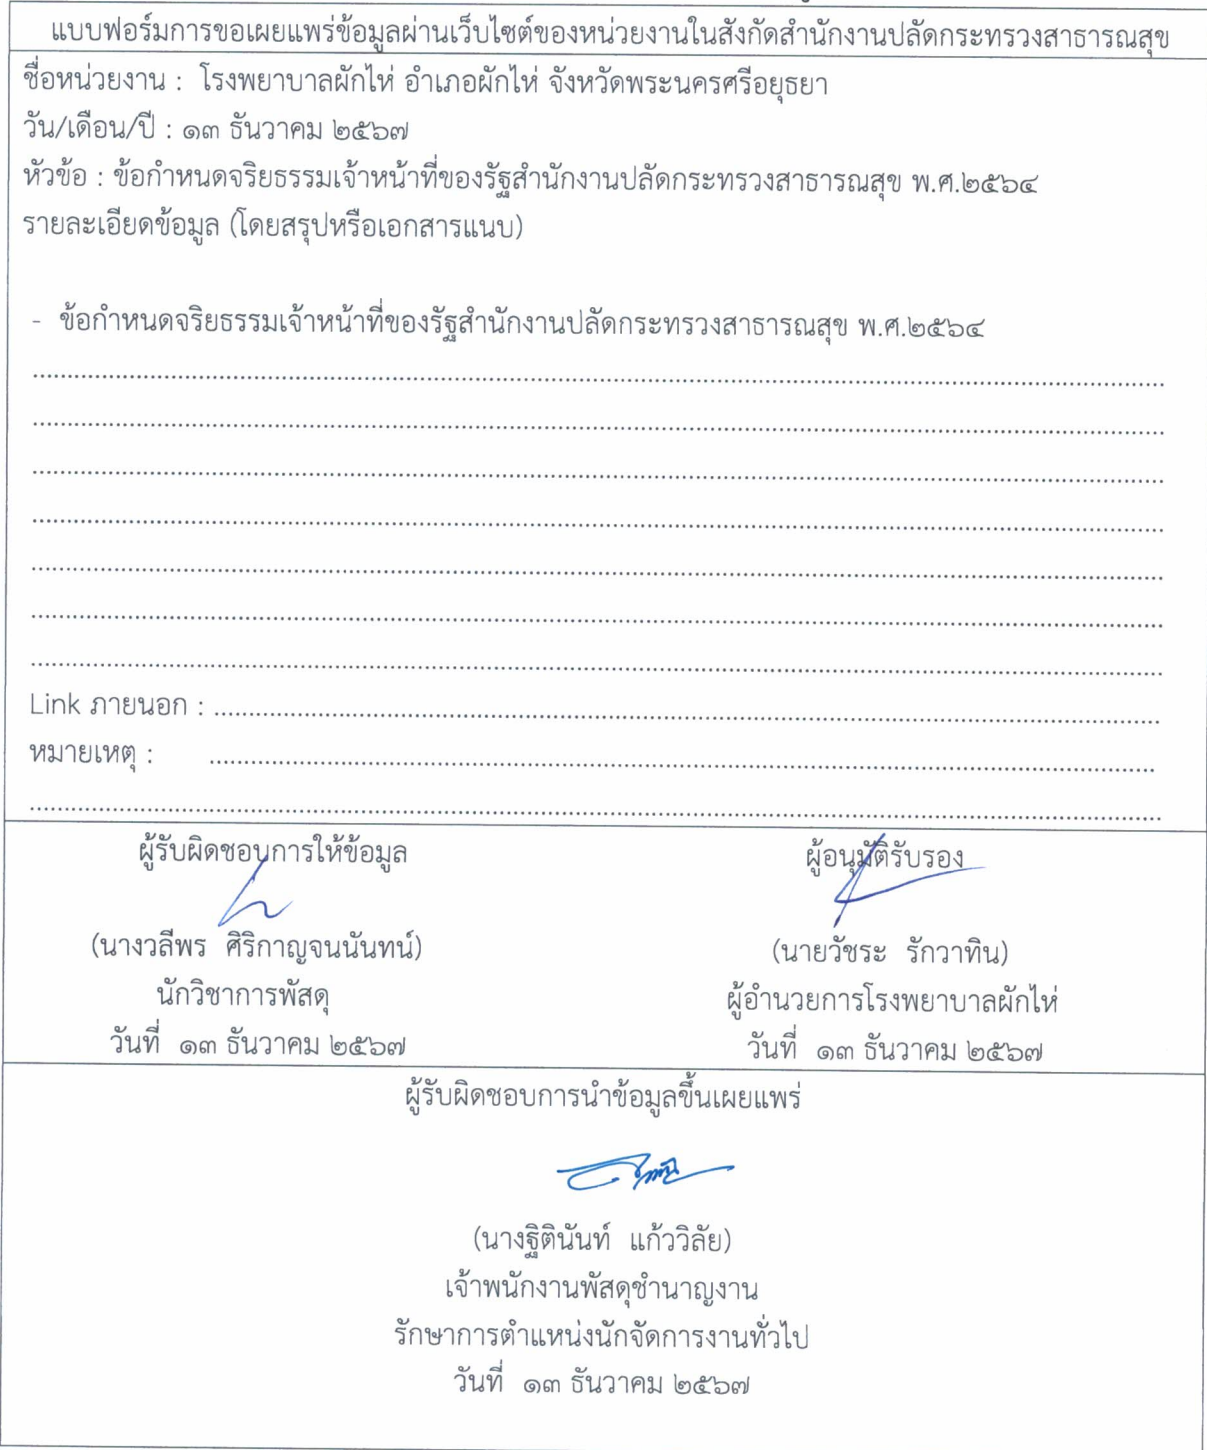 แบบฟอร์มการขอเผยแพร่ข้อมูลผ่านเว็บไซต์ของหน่วยงานในสังกัดสำนักงานปลัดกระทรวงสาธารณสุข
ชื่อหน่วยงาน : โรงพยาบาลผักไห่ อำเภอผักไห่ จังหวัดพระนครศรีอยุธยา
วัน/เดือน/ปี : ๑๓ ธันวาคม ๒๕๖๗
หัวข้อ : ข้อกำหนดจริยธรรมเจ้าหน้าที่ของรัฐสำนักงานปลัดกระทรวงสาธารณสุข พ.ศ.๒๕๖๔
รายละเอียดข้อมูล (โดยสรุปหรือเอกสารแนบ)
- ข้อกำหนดจริยธรรมเจ้าหน้าที่ของรัฐสำนักงานปลัดกระทรวงสาธารณสุข พ.ศ.๒๕๖๔
Link ภายนอก :
หมายเหตุ :
ผู้รับผิดชอบการให้ข้อมูล
(นางวลีพร ศิริกาญจนนันทน์)
นักวิชาการพัสดุ
วันที่ ๑๓ ธันวาคม ๒๕๖๗
ผู้อนุมัติรับรอง
(นายวัชระ รักวาทิน)
ผู้อำนวยการโรงพยาบาลผักไห่
วันที่ ๑๓ ธันวาคม ๒๕๖๗
ผู้รับผิดชอบการนำข้อมูลขึ้นเผยแพร่
(นางฐิตินันท์ แก้ววิลัย)
เจ้าพนักงานพัสดุชำนาญงาน
รักษาการตำแหน่งนักจัดการงานทั่วไป
วันที่ ๑๓ ธันวาคม ๒๕๖๗